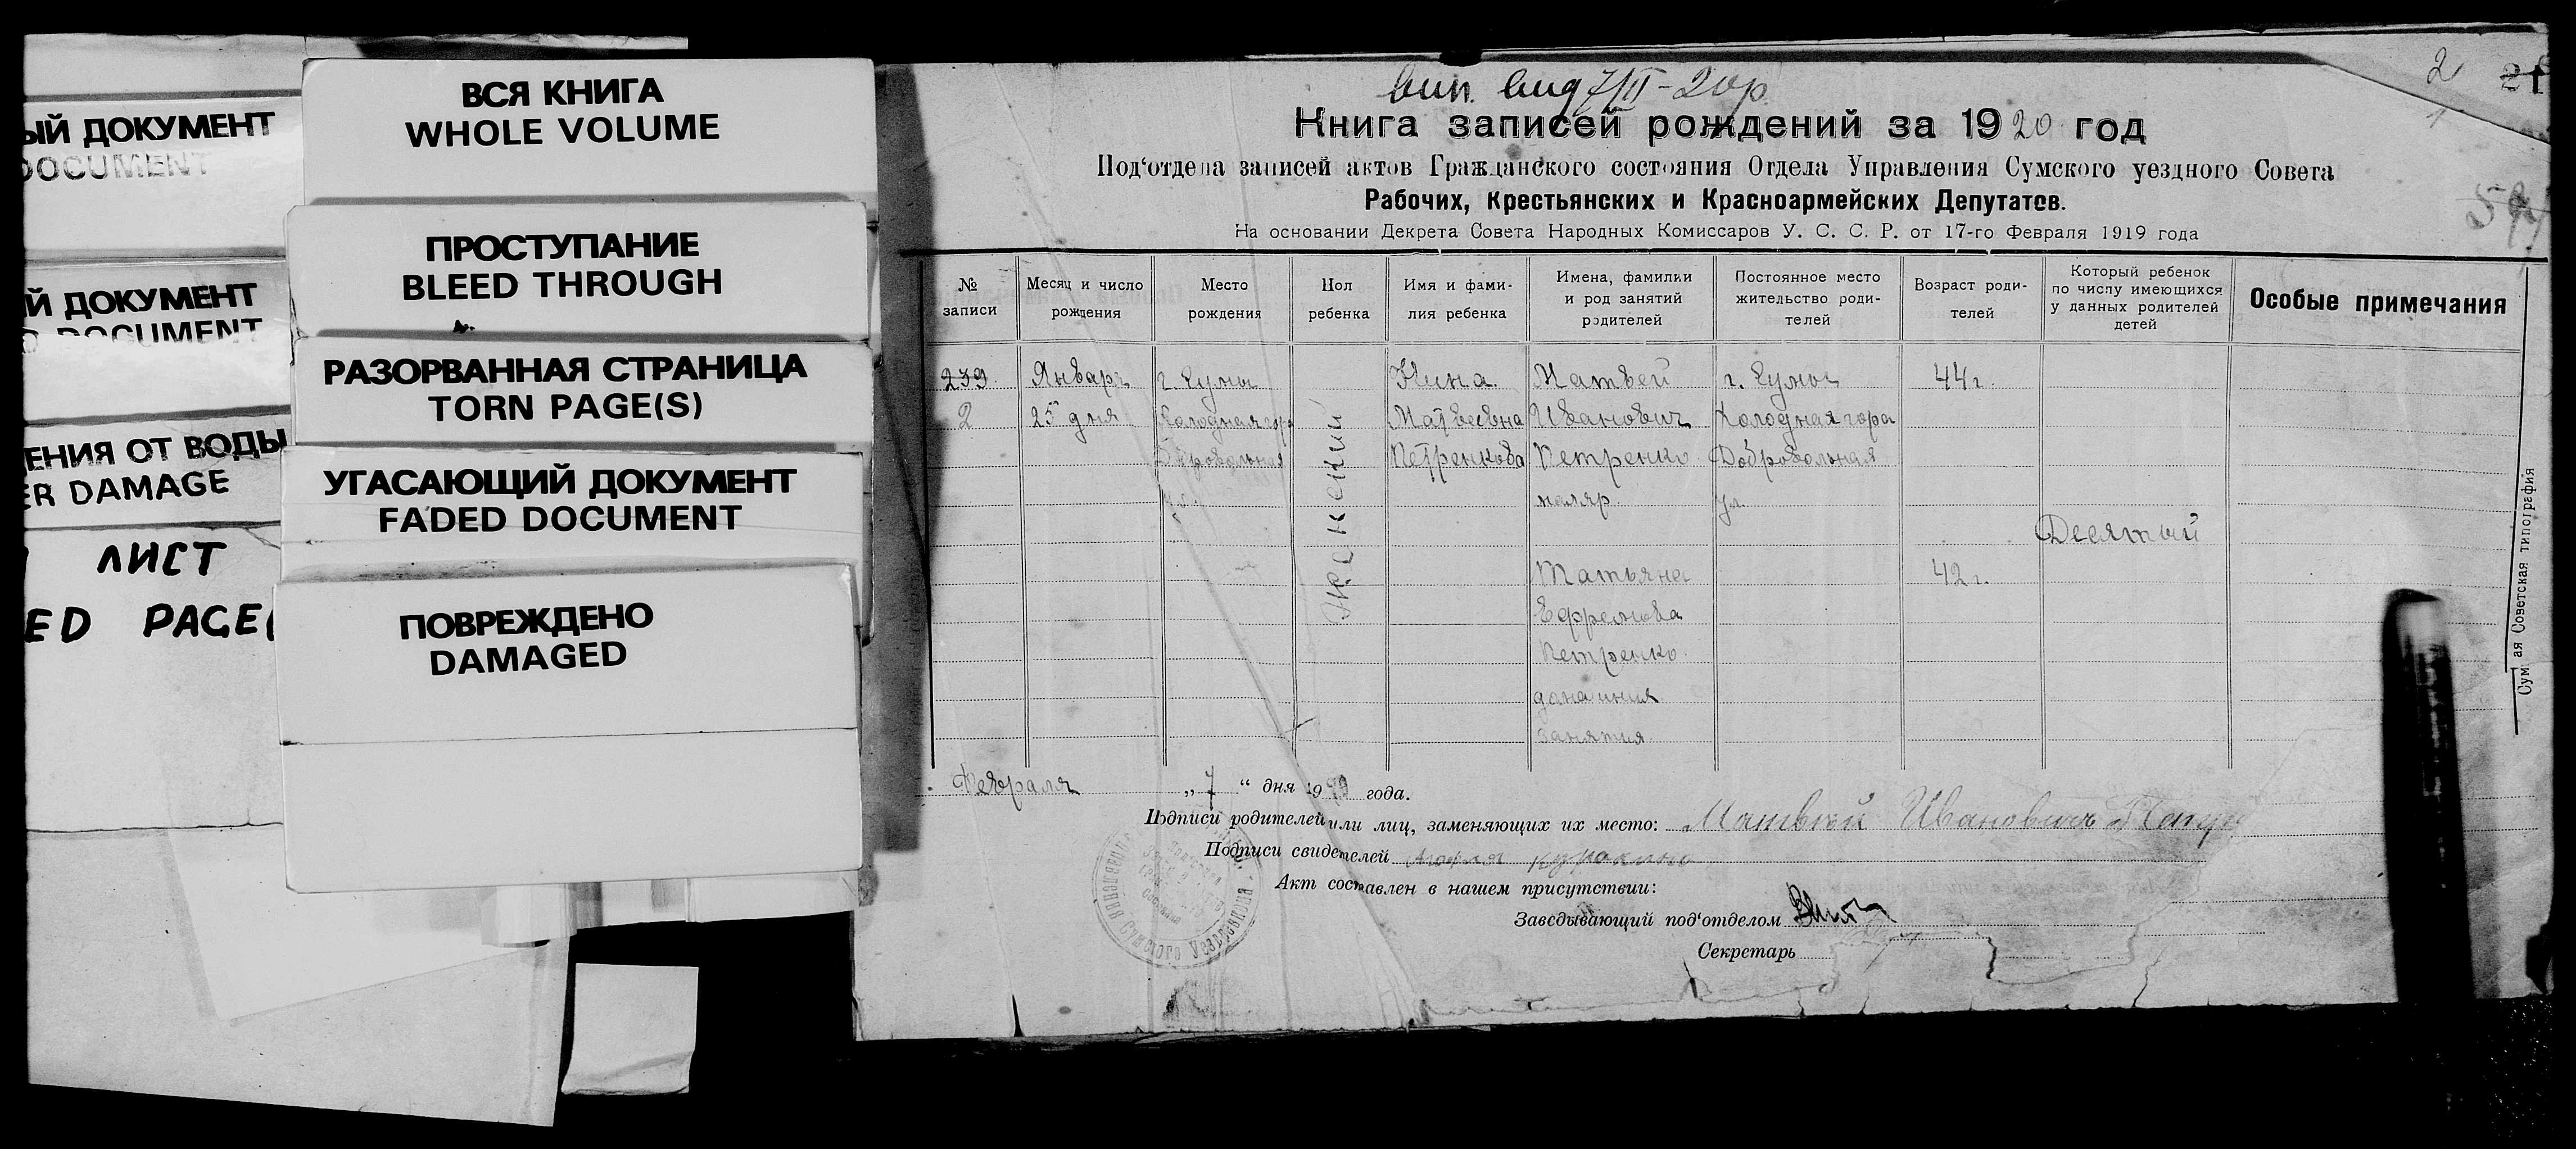 ЫЙ ДОКУМЕНТ
DOCUMENT
Й ДОКУМЕНТ
DOCUMENT
ЕНИЯ ОТ ВОДЫ
ER DAMAGE
ЛИСТ
ED PAGE(
ВСЯ КНИГА
WHOLE VOLUME
ПРОСТУПАНИЕ
BLEED THROUGH
РАЗОРВАННАЯ СТРАНИЦА
TORN PAGE(S)
УГАСАЮЩИЙ ДОКУМЕНТ
FADED DOCUMENT
ПОВРЕЖДЕНО
DAMAGED
вип. вид 7/II-20р.
2 21
Книга записей рождений за 1920 год
Под‘отдела записей актов Гражданского состояния Отдела Управления Сумского уездного Совета
Рабочих, Крестьянских и Красноармейских Депутатов.
На основании Декрета Совета Народных Комиссаров У. С. С. Р. от 17-го Февраля 1919 года
№ записи
Месяц и число рождения
Место рождения
Пол ребенка
Имя и фами-
лия ребенка
Имена, фамилии
и род занятий
родителей
Постоянное место
жительство роди-
телей
Возраст роди-
телей
Который ребенок
по числу имеющихся
у данных родителей
детей
Особые примечания
239.
2
Январь
25 дня
г. Сумы
Холодная гор
Добровольная
ул.
Женский
Нина.
Матвеевна
Петренкова
Матвей
Иванович
Петренко
маляр.
Татьяна
Ефремова
Петренко.
домашния
занятия.
г. Сумы
Холодная гора
Добровольная
ул.
44 г.
42 г.
Десятый
Сум ая Советская типография
Февраля „7“ дня 19 года.
Подписи родителей или лиц, заменяющих их место: Матвей Иванович Петр
Подписи свидетелей
Акт составлен в нашем присутствии:
Заведывающий под‘отделом
Секретарь